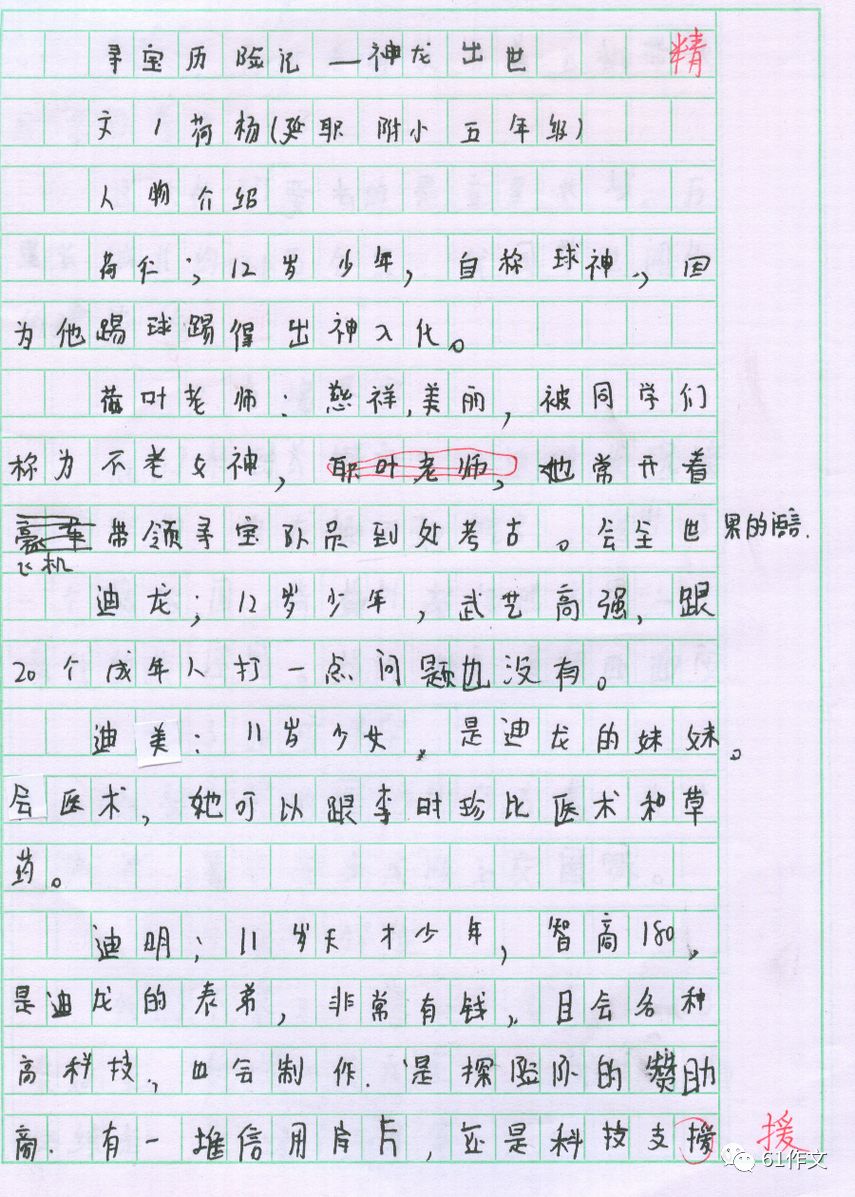 寻宝历险记—神龙出世
精
文/荷杨(延职附小五年级)
人物介绍
荷仁:,12岁少年,自称球神,,因
为他踢球踢得出神入化。
荷叶老师:慈祥,美丽,被同学们
称为不老女神,职叶老师,她常开着
豪车带领寻宝队员到处考古。会全世界的语言.
飞机
迪龙:12岁少年,武艺高强,跟
20个成年人打一点问题也没有。
迪美:11岁少女,是迪龙的妹妹。
会医术,她可以跟李时珍比医术和草
药。
迪明:11岁天才少年,智商180,
是迪龙的表弟,非常有钱,且会各种
高科技,也会制作.是探险队的赞助
商.有一堆信用卡片,还是科技支援
援
61作文